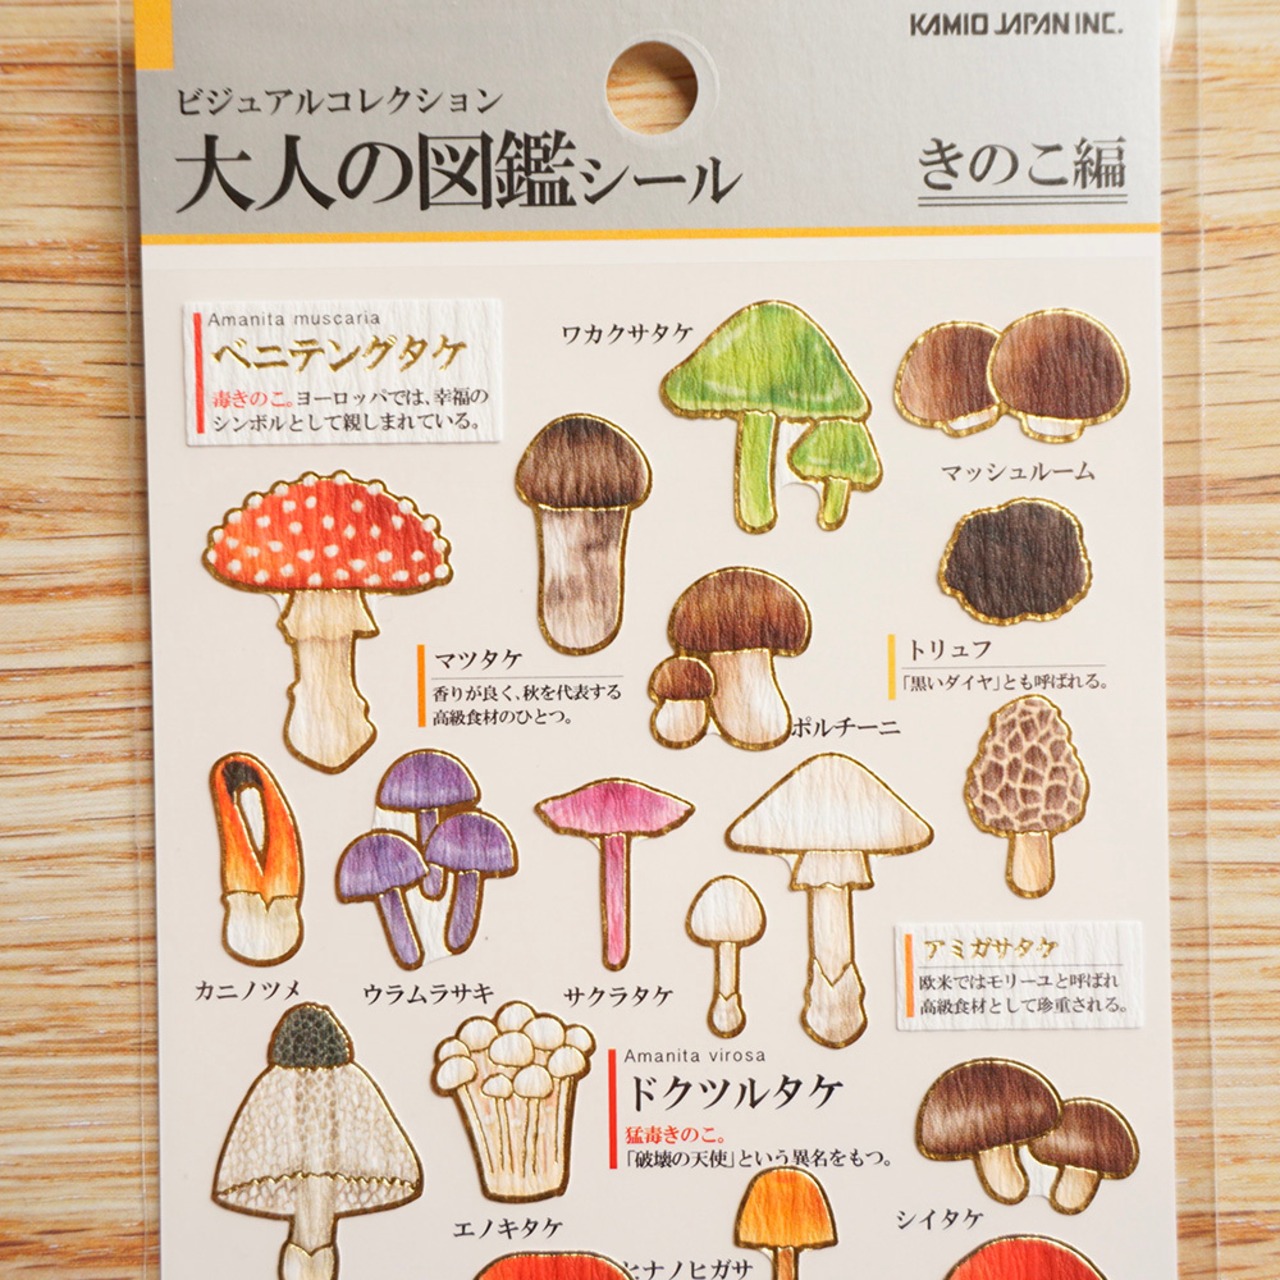 KAMIO JAPAN INC.
ビジュアルコレクション
大人の図鑑シール
きのこ編
Amanita muscaria
ベニテングタケ
毒きのこ。ヨーロッパでは、幸福の
シンボルとして親しまれている。
ワカクサタケ
マッシュルーム
マツタケ
香りが良く、秋を代表する
高級食材のひとつ。
トリュフ
「黒いダイヤ」とも呼ばれる。
ポルチーニ
カニノツメ
ウラムラサキ
サクラタケ
アミガサタケ
欧米ではモリーユと呼ばれ
高級食材として珍重される。
Amanita virosa
ドクツルタケ
猛毒きのこ。
「破壊の天使」という異名をもつ。
エノキタケ
シイタケ
ヒナノヒガサ